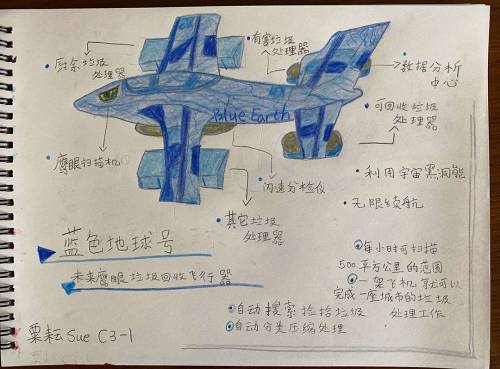 厨余垃圾
处理器
有害垃圾
处理器
数据分析
中心
可回收垃圾
处理器
Blue Earth
鹰眼扫描机
闪速分检仪
其它垃圾
处理器
利用宇宙黑洞能
无限续航
蓝色地球号
未来鹰眼垃圾回收飞行器
每小时可扫描
500平方公里的范围
一架飞机就可以
完成一座城市的垃圾
处理工作
自动搜索捡拾垃圾
自动分类压缩处理
粟耘 Sue C3-1